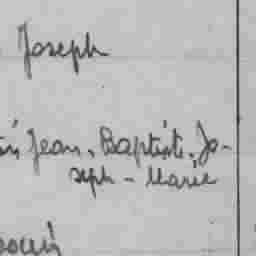 Joseph
Jean, Baptiste, Jo-
seph - Marie